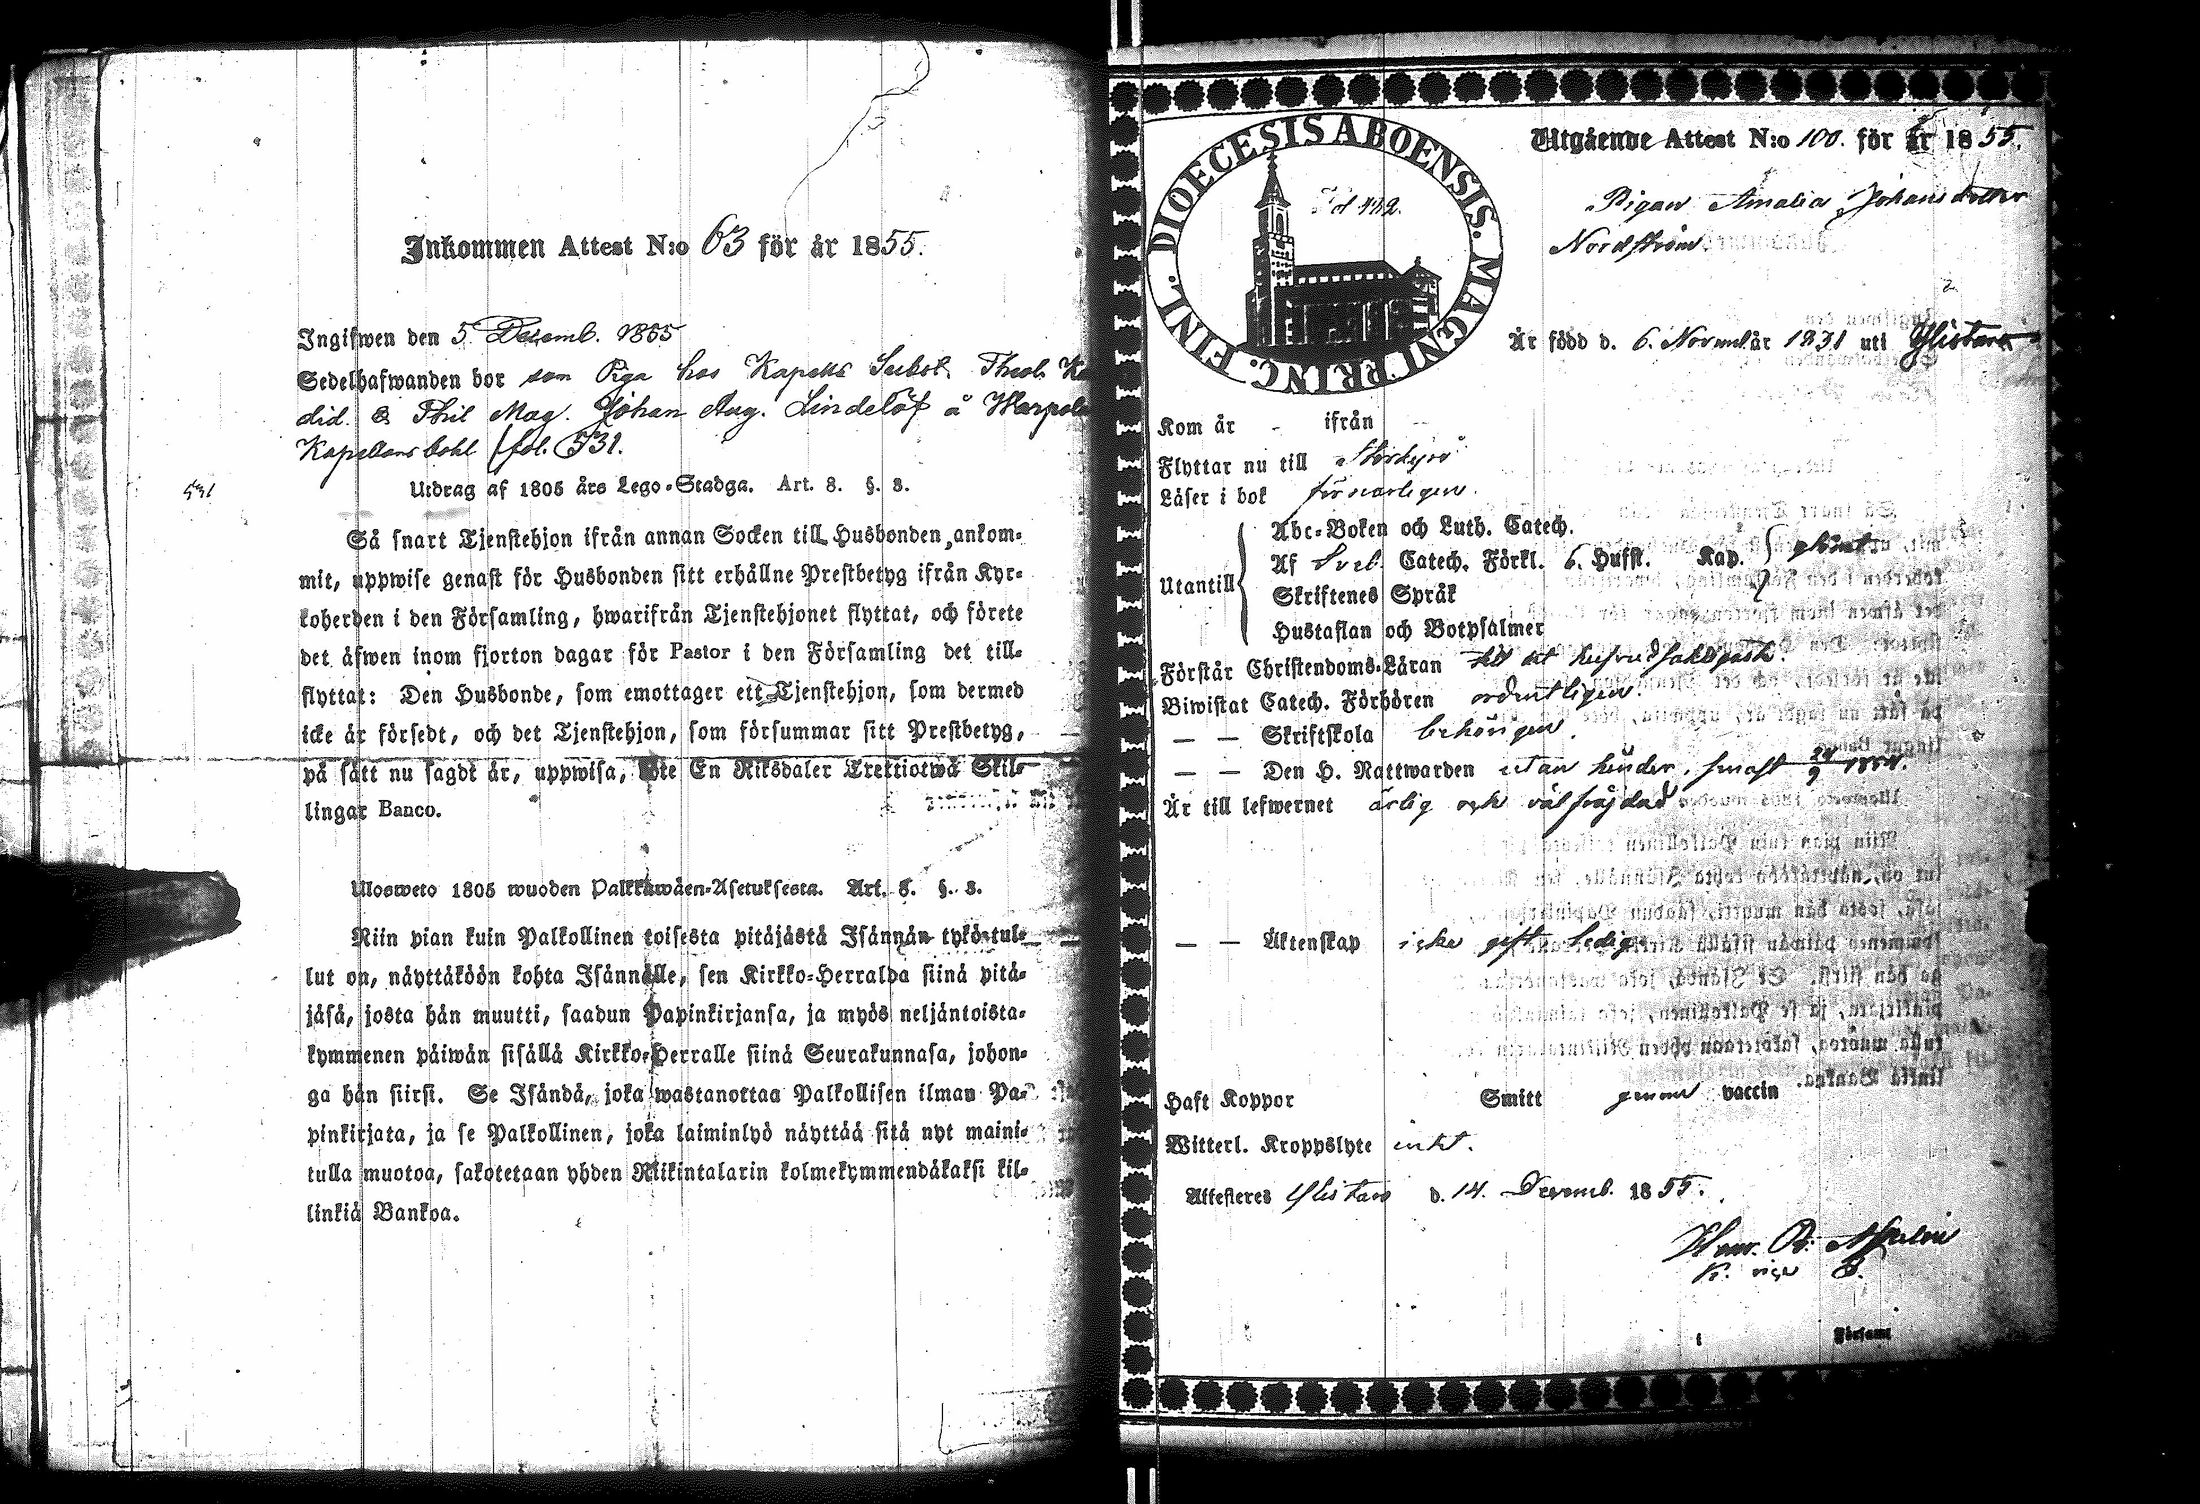 Inkommen Attest N:o 63 för år 1855.
Ingifwen den 5 Decemb. 1855
Sedelhafwanden bor som Piga hos Kapells Subst. Theol. Ka
did. & Phil Mag. Johan Aug. Lindelöf å Harpola
Kapellans bohl (fol. 531.
531
Utdrag af 1805 års Lego-Stadga. Art. 8. §. 3.
Så snart Tjenstehjon ifrån annan Socken till Husbonden ankom-
mit, uppwise genast för Husbonden sitt erhållne Prestbetyg ifrån Kyr-
koherden i den Församling, hwarifrån Tjenstehjonet flyttat, och förete
det äfwen inom fjorton dagar för Pastor i den Församling det till-
flyttat: Den Husbonde, som emottager ett Tjenstehjon, som dermed
icke är försedt, och det Tjenstehjon, som försummar sitt Prestbetyg,
på sätt nu sagdt är, uppwisa, böte En Riksdaler Trettiotwå Skil-
lingar Banco.
Ulosweto 1805 wuoden Palkkawäen-Asetuksesta. Art. 8. §. 3.
Niin pian kuin Palkollinen toisesta pitäjästä Isännän tykö tul-
lut on, näyttäköön kohta Isännälle, sen Kirkko-Herralda siinä pitä-
jäsä, josta hän muutti, saadun Papinkirjansa, ja myös neljäntoista-
kymmenen päiwän sisällä Kirkko-Herralle siinä Seurakunnasa, johon-
ga hän siirsi. Se Isändä, joka wastanottaa Palkollisen ilman Pa-
pinkirjata, ja se Palkollinen, joka laiminlyö näyttää sitä nyt maini-
tulla muotoa, sakotetaan yhden Riikintalarin kolmekymmendäkaksi kil-
linkiä Bankoa.
DIOECESIS ABOENSIS. MAGNI PRINC. FINL.
Fol 412.
Utgående Attest N:o 100. för år 1855.
Pigan Amalia Johansdotter
Nordström
Är född d. 6. Novembär 1831 uti Ylistaro
Kom år - ifrån
Flyttar nu till Storkyro
Läser i bok försvarligen.
Utantill
Abc-Boken och Luth. Catech.
Af Sveb. Catech. Förkl. 6. Hufst. Kap.
Skriftenes Språk
Hustaflan och Botpsalmer
Förstår Christendoms-Läran
Biwistat Catech. Förhören ordentligen.
— — Skriftskola behörigen.
— — Den H. Nattwarden utan hinder, senast 24/9 1854.
Är till lefwernet ärlig och väl fräjdad
— — Äktenskap icke gift ledig
Haft Koppor Smitt genom vaccin
Witterl. Kroppslyte intet.
Attesteres Ylistaro d. 14. Decemb. 1855.
Församl